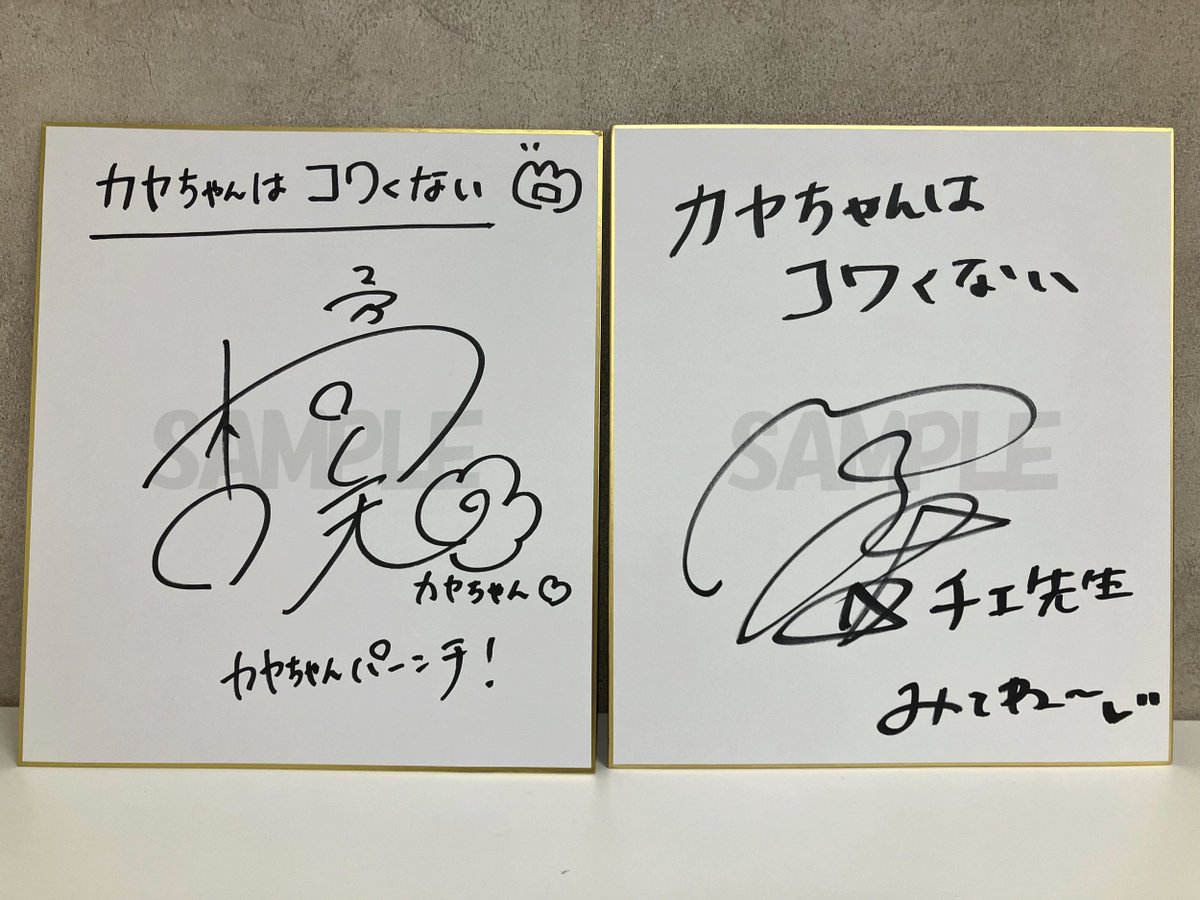 カヤちゃんは コワくない
SAMPLE
カヤちゃん♡
カヤちゃんパーンチ!
カヤちゃんは
コワくない
SAMPLE
チエ先生
みてね〜